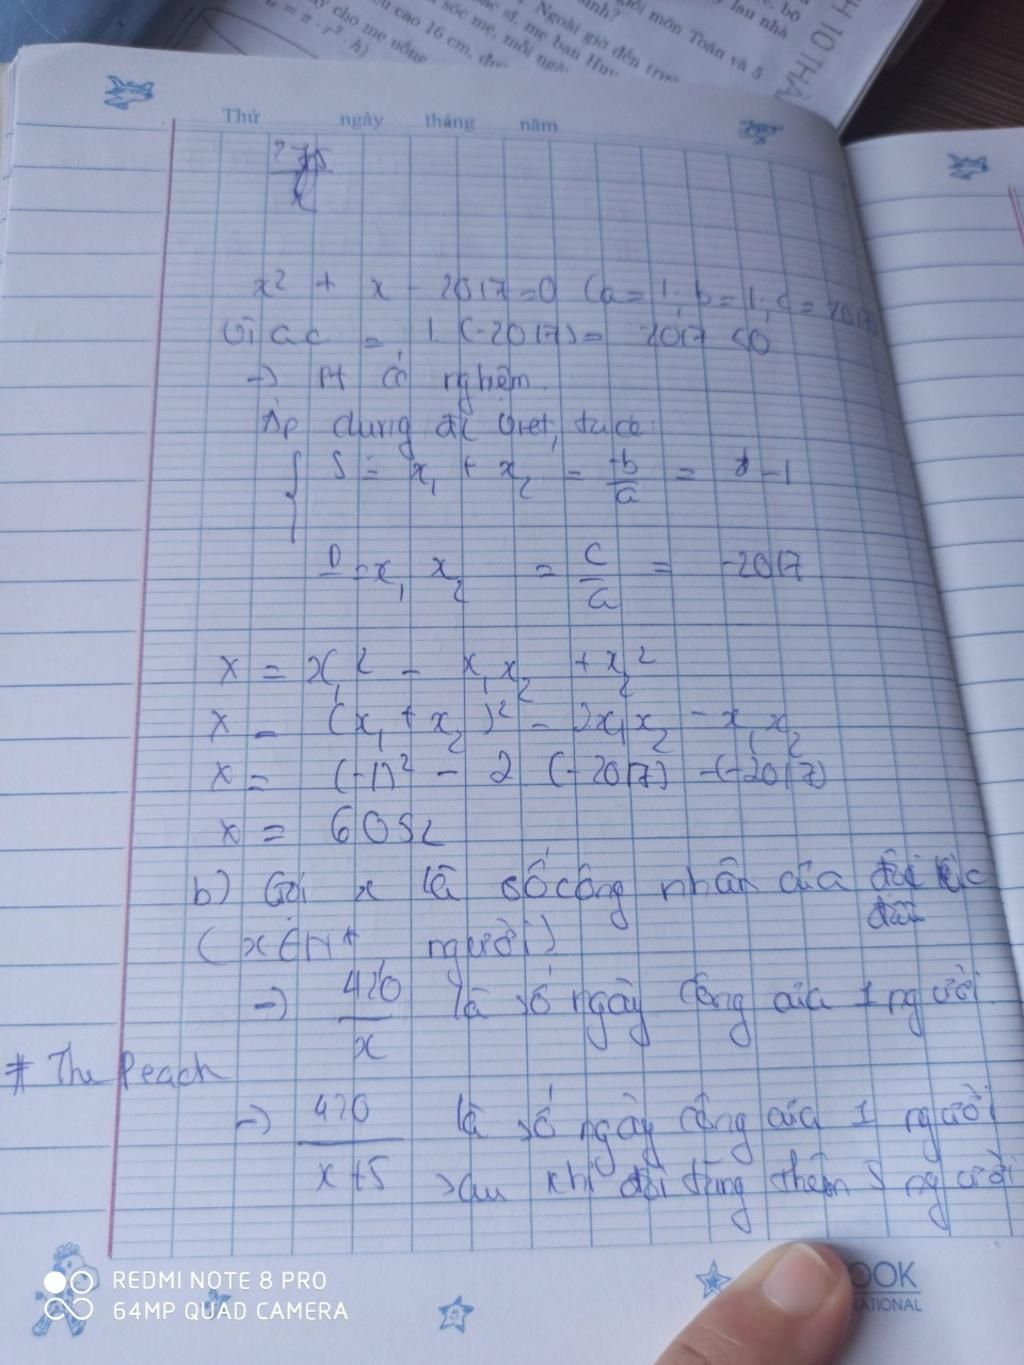 cho mẹ uống
cao 16 cm, đư
sóc mẹ, mỗi ngà
bác sĩ, mẹ bạn Huy
Ngoài giờ đến trư
giỏi môn Toán và 5
lau nhà
π . r² . h)
H 10 THÀ
Thứ ngày tháng năm
x² + x - 2017 = 0 (a = 1; b = 1; c = -2017)
Vì ac = 1. (-2017) = -2017 <0
-> Pt có nghiệm.
Áp dụng đl Viet, ta có:
S = x₁ + x₂ = -b/a = -1
P = x₁ x₂ = c/a = -2017
X = x₁² - x₁x₂ + x₂²
X = (x₁ + x₂)² - 2x₁x₂ - x₁x₂
X = (-1)² - 2 (-2017) -(-2017)
X = 6052
b) Gọi x là số công nhân của đội lúc
đầu
(x ∈ N* người)
-> 420/x là số ngày công của 1 người
# The Peach
-> 420/x+5 là số ngày công của 1 người
sau khi đội tăng thêm 5 người
REDMI NOTE 8 PRO
64MP QUAD CAMERA
OOK
NATIONAL